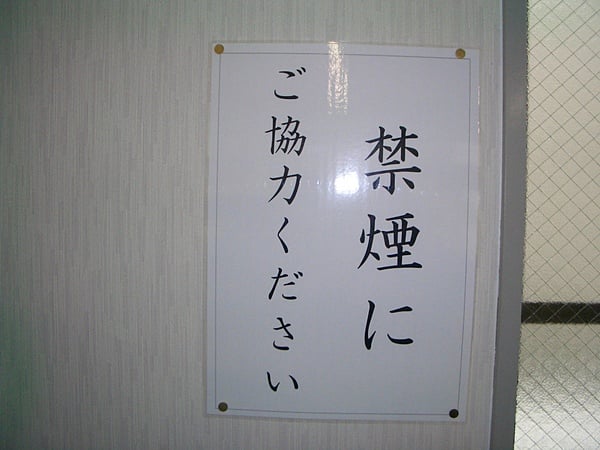 禁煙に
ご協力ください